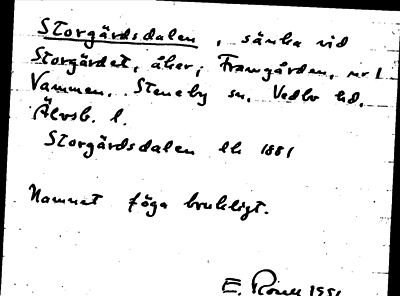 Storgårdsdalen, sänka vid
Storgärdet, åker, Framgården, nr 1
Vammen. Steneby sn. Vedbo hd.
Älvsb. l.
Storgårdsdalen lk 1881
Namnet föga brukligt.
E. Rosell 1951